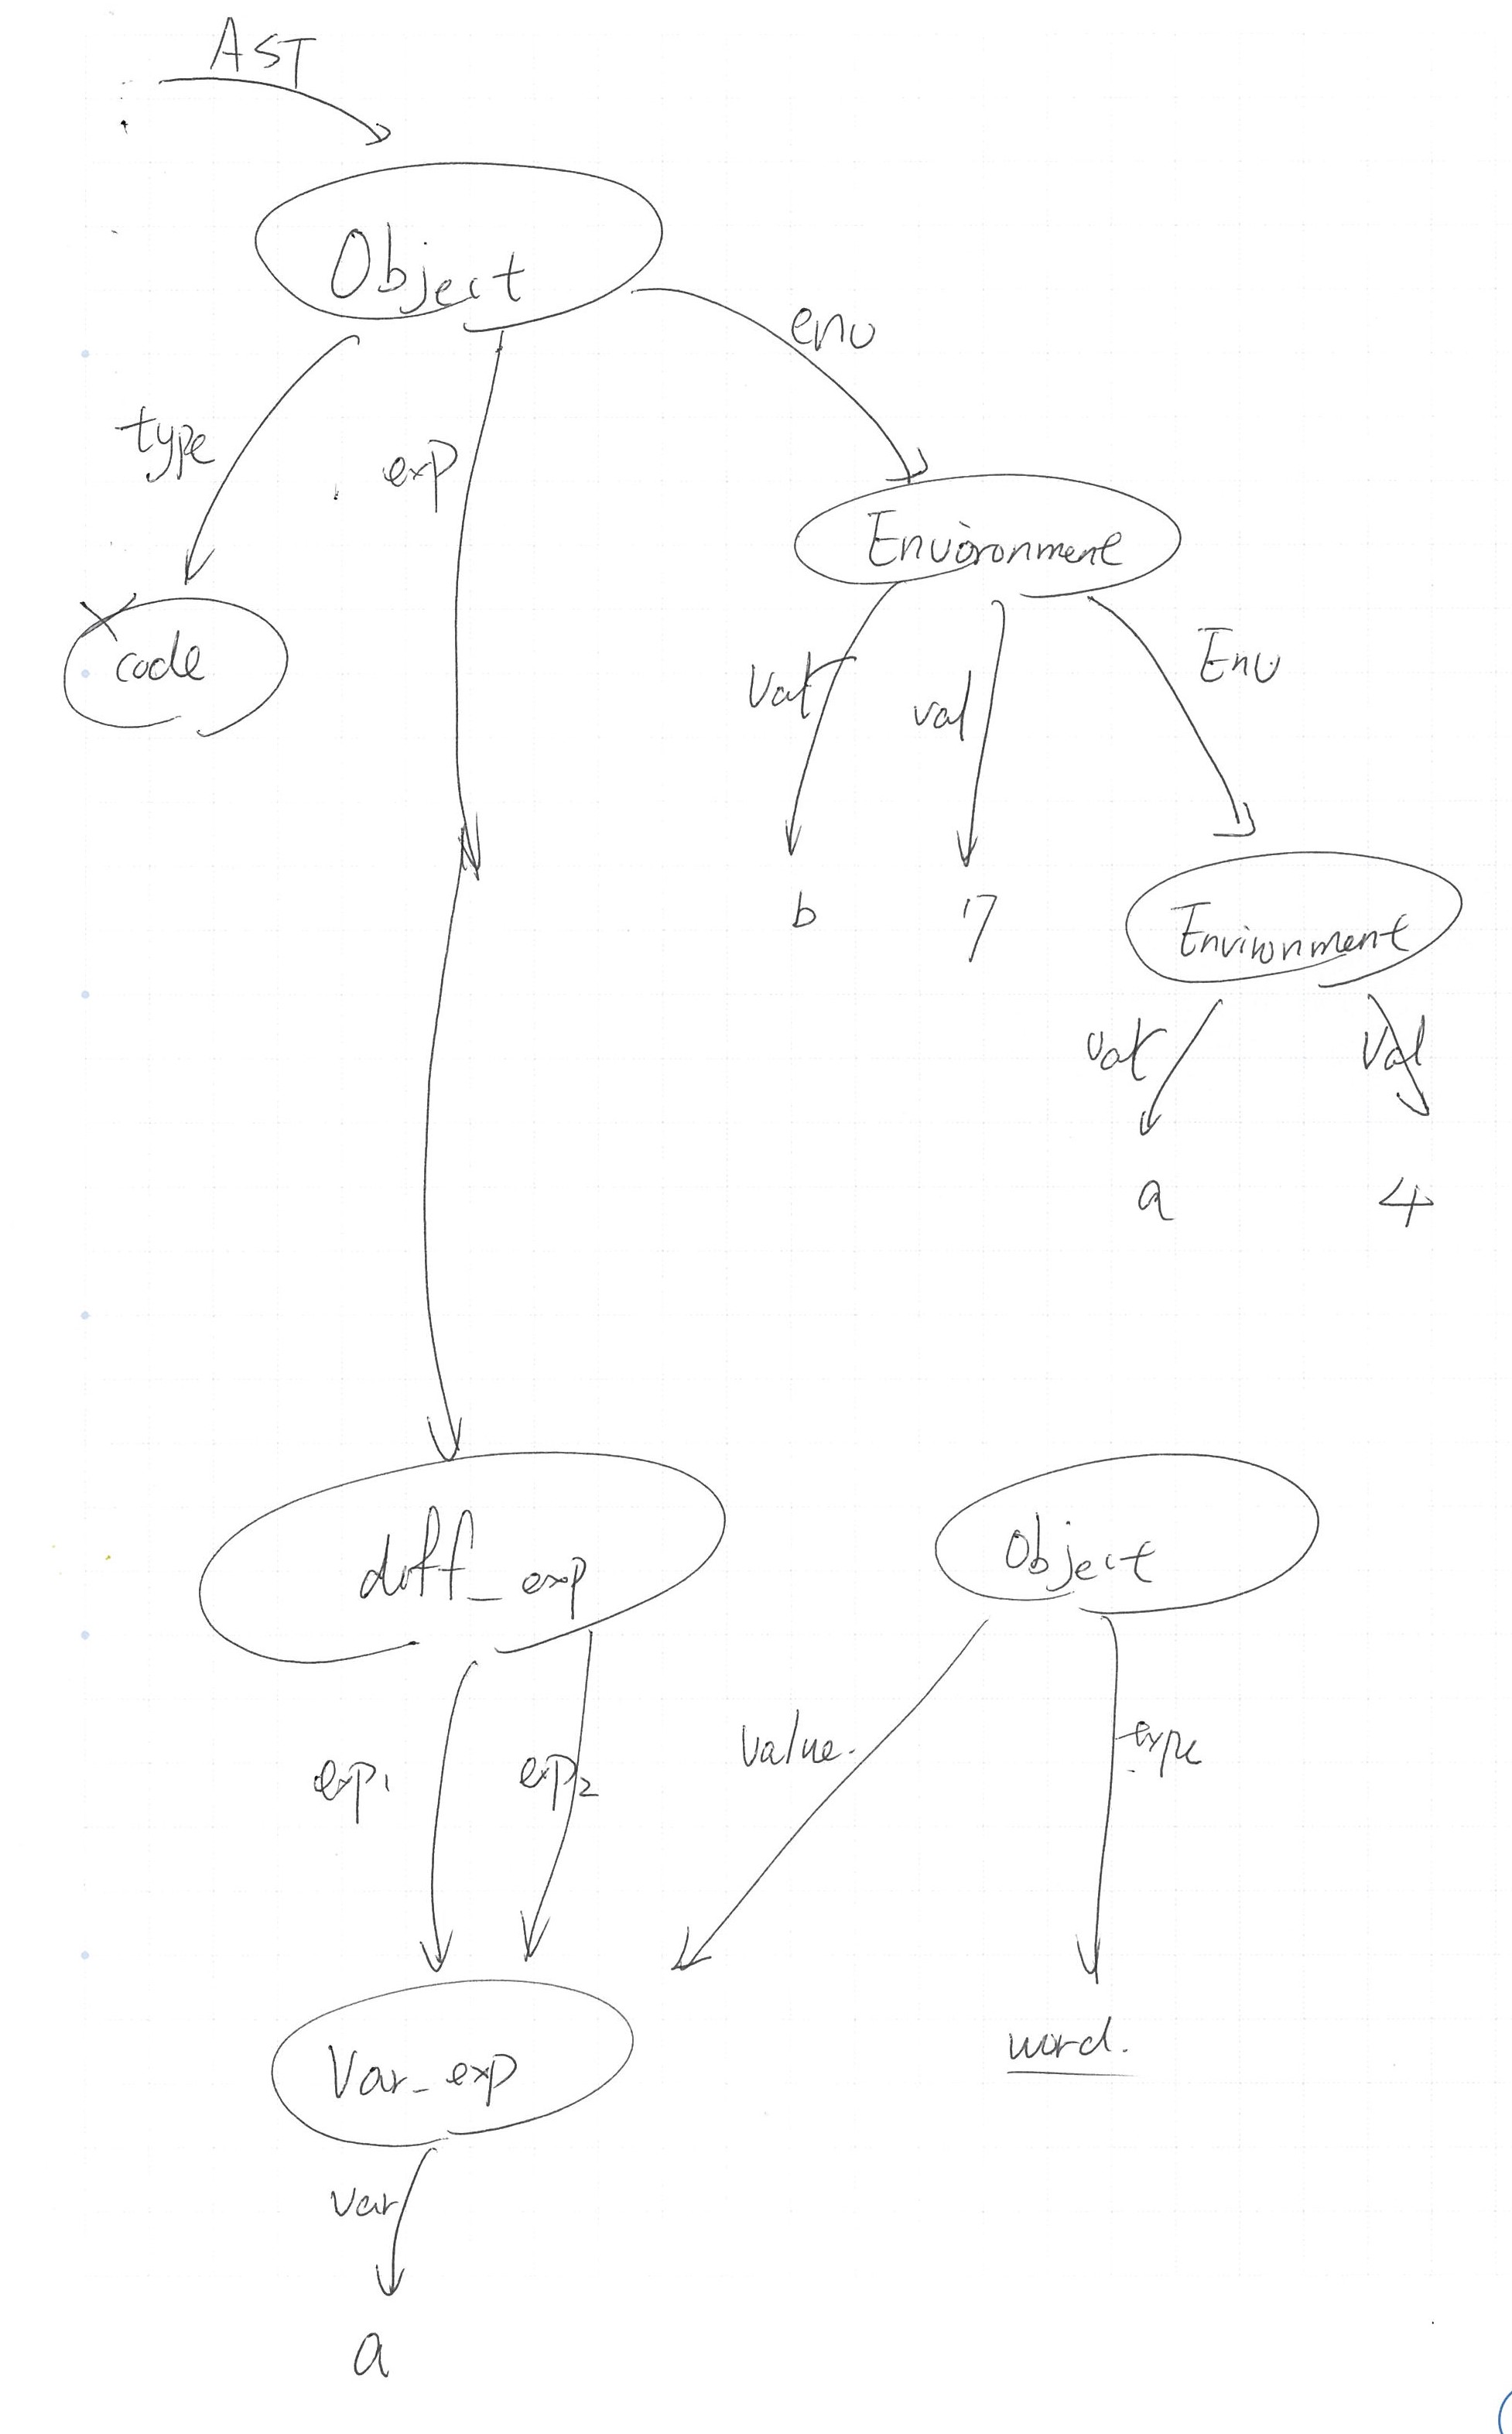 AST
Object
env
type
exp
Environment
code
Var
val
Env
b
7
Environment
var
Val
a
4
diff_exp
Object
exp1
exp2
value.
type
Var_exp
word.
var
a